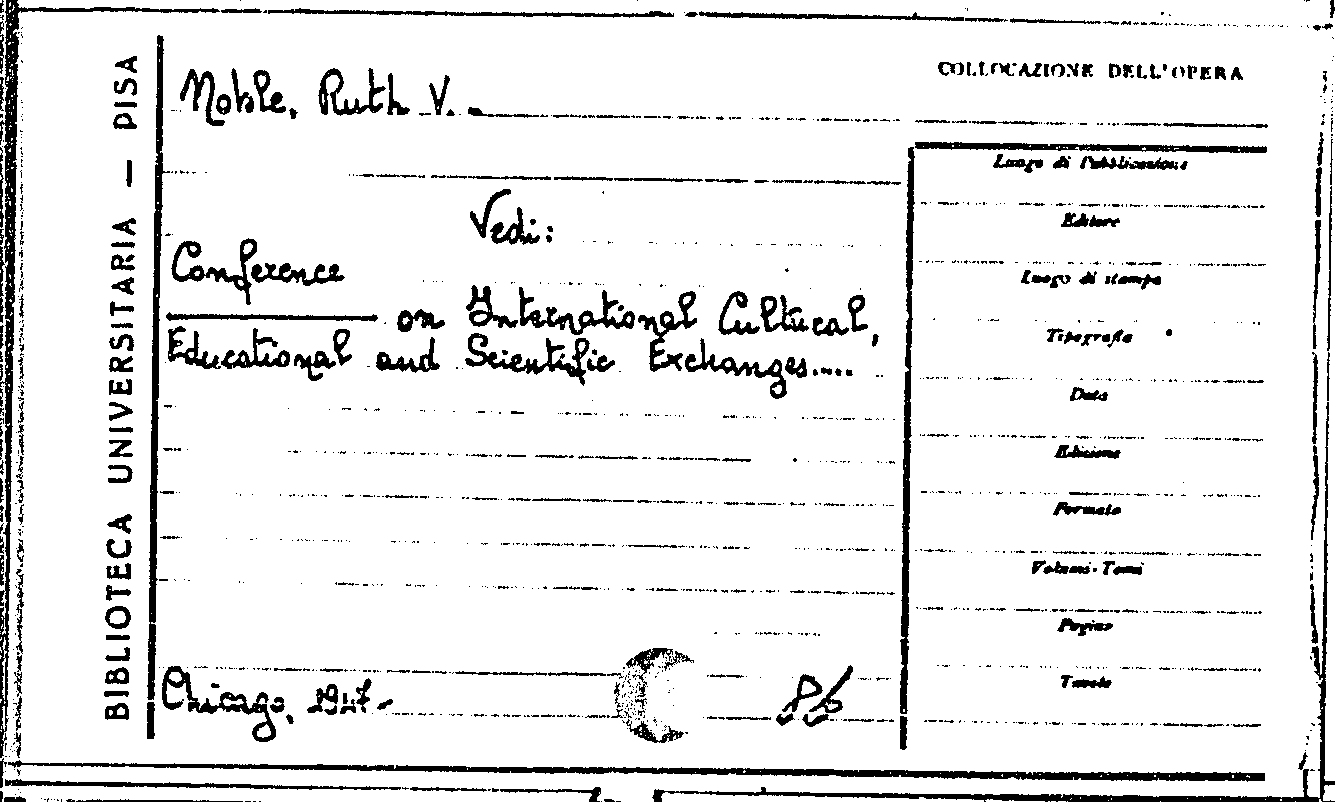 BIBLIOTECA UNIVERSITARIA — PISA
Noble, Ruth V. -
Vedi:
Conference
on International Cultural,
Educational and Scientific Exchanges.....
Chicago, 1947-
COLLOCAZIONE DELL'OPERA
Luogo di Pubblicazione
Editore
Luogo di stampa
Tipografia
Data
Edizione
Formato
Volumi-Tomi
Pagine
Tavole